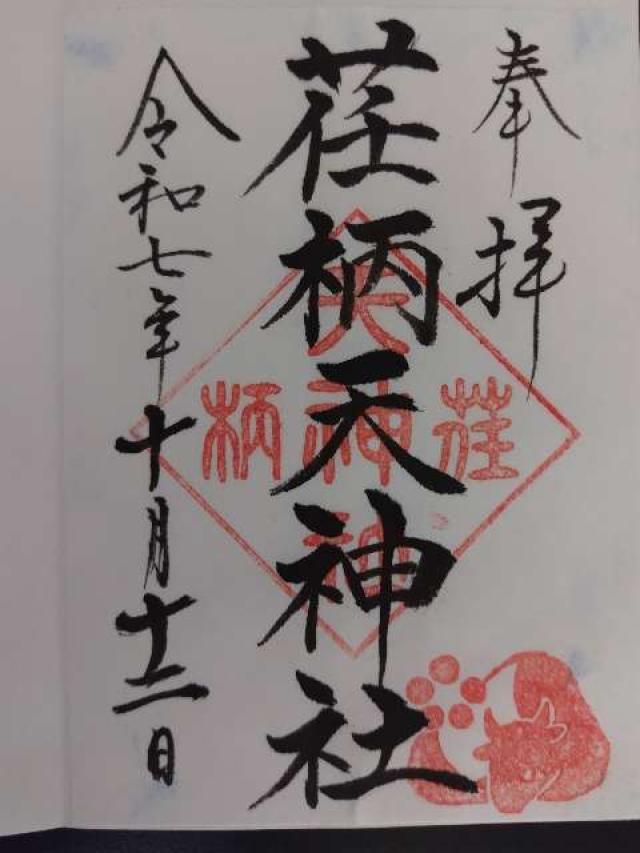 奉拝
荏柄天神社
令和七年十月十二日
荏
天神社
柄